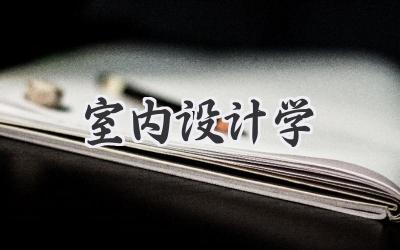 室内设计学